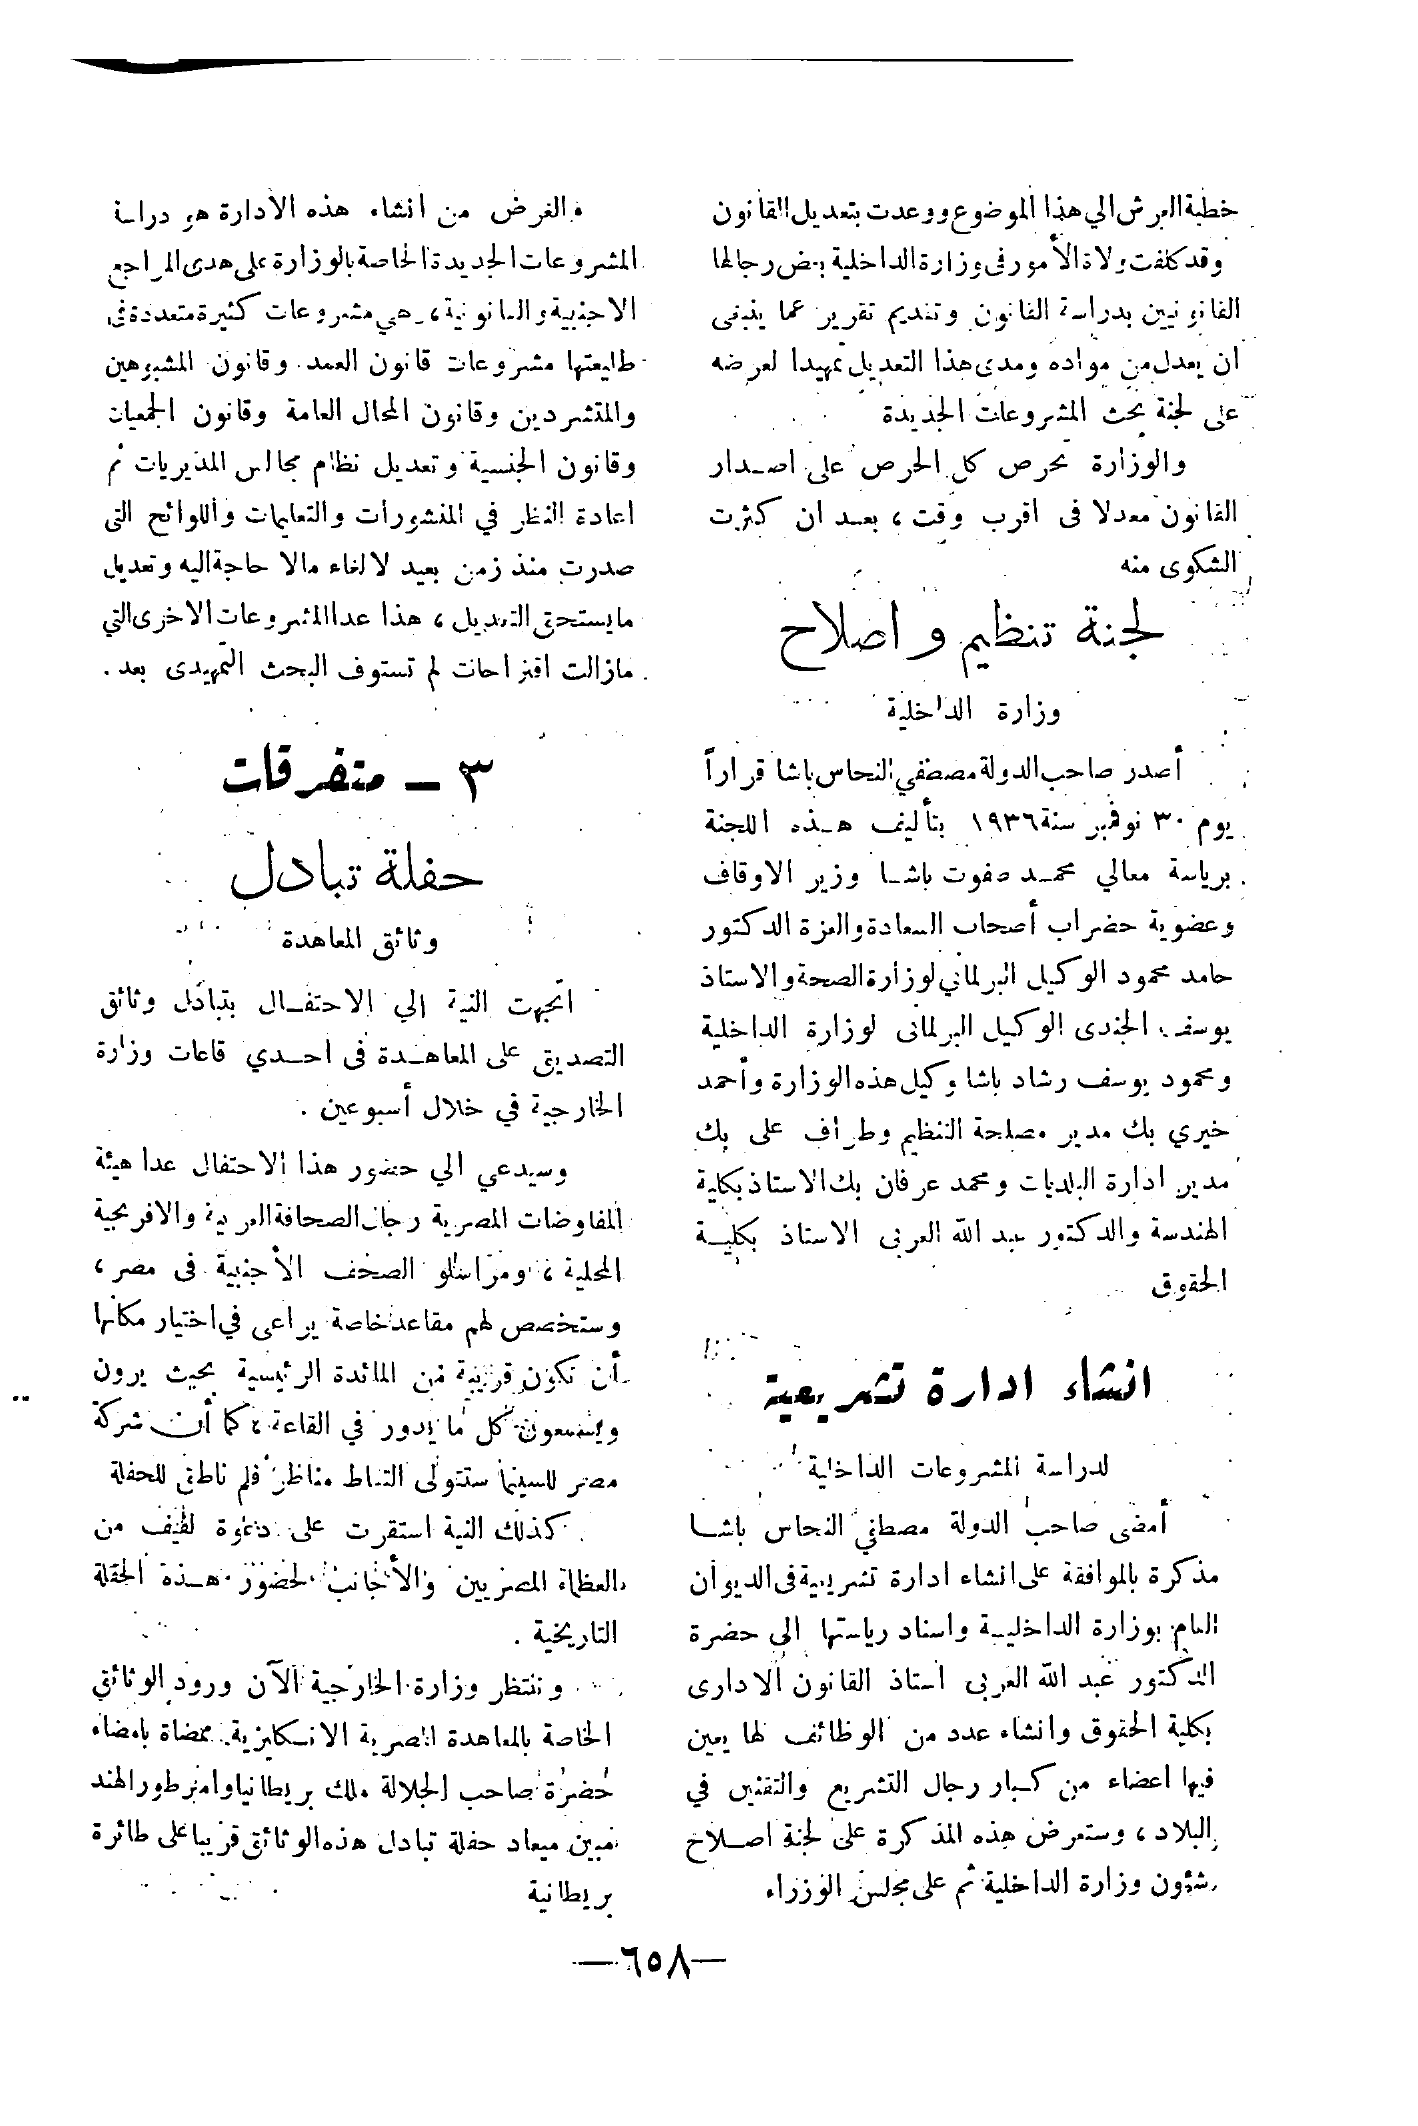 خطبة العرش الي هذا الموضوع ووعدت بتعديل القانون
وقد كلفت ولاة الأمور فى وزارة الداخلية بعض رجالها
القانونيين بدراسة القانون وتقديم تقرير عما ينبغى
ان يعدل من مواده ومدى هذا التعديل تمهيدا لعرضه
على لجنة بحث المشروعات الجديدة
والوزارة تحرص كل الحرص على اصدار
القانون معدلا فى اقرب وقت ، بعد ان كثرت
الشكوى منه
لجنة تنظيم و اصلاح
وزارة الداخلية
أصدر صاحب الدولة مصطفي النحاس باشا قراراً
يوم ٣٠ نوفمبر سنة ١٩٣٦ بتأليف هذه اللجنة
برياسة معالي محمد صفوت باشا وزير الاوقاف
وعضوية حضراب أصحاب السعادة والعزة الدكتور
حامد محمود الوكيل البرلماني لوزارة الصحة والاستاذ
يوسف الجندى الوكيل البرلمانى لوزارة الداخلية
ومحمود يوسف رشاد باشا وكيل هذه الوزارة وأحمد
خيري بك مدير مصلحة التنظيم وطراف على بك
مدير ادارة البلديات ومحمد عرفان بك الاستاذ بكلية
الهندسة والدكتور عبد الله العربى الاستاذ بكلية
الحقوق
انشاء ادارة تشريعية
لدراسة المشروعات الداخلية
أمضى صاحب الدولة مصطفي النحاس باشا
مذكرة بالموافقة على انشاء ادارة تشريعية فى الديوان
العام بوزارة الداخلية واسناد رياستها الى حضرة
الدكتور عبد الله العربى استاذ القانون الادارى
بكلية الحقوق وانشاء عدد من الوظائف لها يعين
فيها اعضاء من كبار رجال التشريع والتقنين في
البلاد ، وستعرض هذه المذكرة على لجنة اصلاح
شؤون وزارة الداخلية ثم على مجلس الوزراء
والغرض من انشاء هذه الادارة هو دراسة
المشروعات الجديدة الخاصة بالوزارة على هدى المراجع
الاجنبية والقانونية ، وهي مشروعات كثيرة متعددة فى
طليعتها مشروعات قانون العمد وقانون المشبوهين
والمتشردين وقانون المحال العامة وقانون الجمعيات
وقانون الجنسية وتعديل نظام مجالس المديريات ثم
اعادة النظر في المنشورات والتعليمات واللوائح التى
صدرت منذ زمن بعيد لالغاء مالا حاجة اليه وتعديل
مايستحق التعديل ، هذا عدا المشروعات الاخرى التي
مازالت اقتراحات لم تستوف البحث التمهيدى بعد .
٣ – متفرقات
حفلة تبادل
وثائق المعاهدة
اتجهت النية إلي الاحتفال بتبادل وثائق
التصديق على المعاهدة فى احدي قاعات وزارة
الخارجية في خلال أسبوعين .
وسيدعي الي حضور هذا الاحتفال عدا هيئة
المفاوضات المصرية رجال الصحافة العربية والافرنجية
المحلية ، ومراسلو الصحف الأجنبية فى مصر ،
وستخصص لهم مقاعد خاصة يراعى في اختيار مكانها
أن تكون قريبة من المائدة الرئيسية بحيث يرون
ويسمعون كل ما يدور في القاعة ، كما أن شركة
مصر للسينما ستتولى التقاط مناظر فلم ناطق للحفلة
كذلك النية استقرت على دعوة لفيف من
العظماء المصريين والأجانب لحضور هذة الحفلة
التاريخية .
وتنتظر وزارة الخارجية الآن ورود الوثائق
الخاصة بالمعاهدة المصرية الانكليزية ممضاة بامضاء
حضرة صاحب الجلالة ملك بريطانيا وامبرطور الهند
نعيين ميعاد حفلة تبادل هذه الوثائق قريبا على طائرة
بريطانية
—٦٥٨—